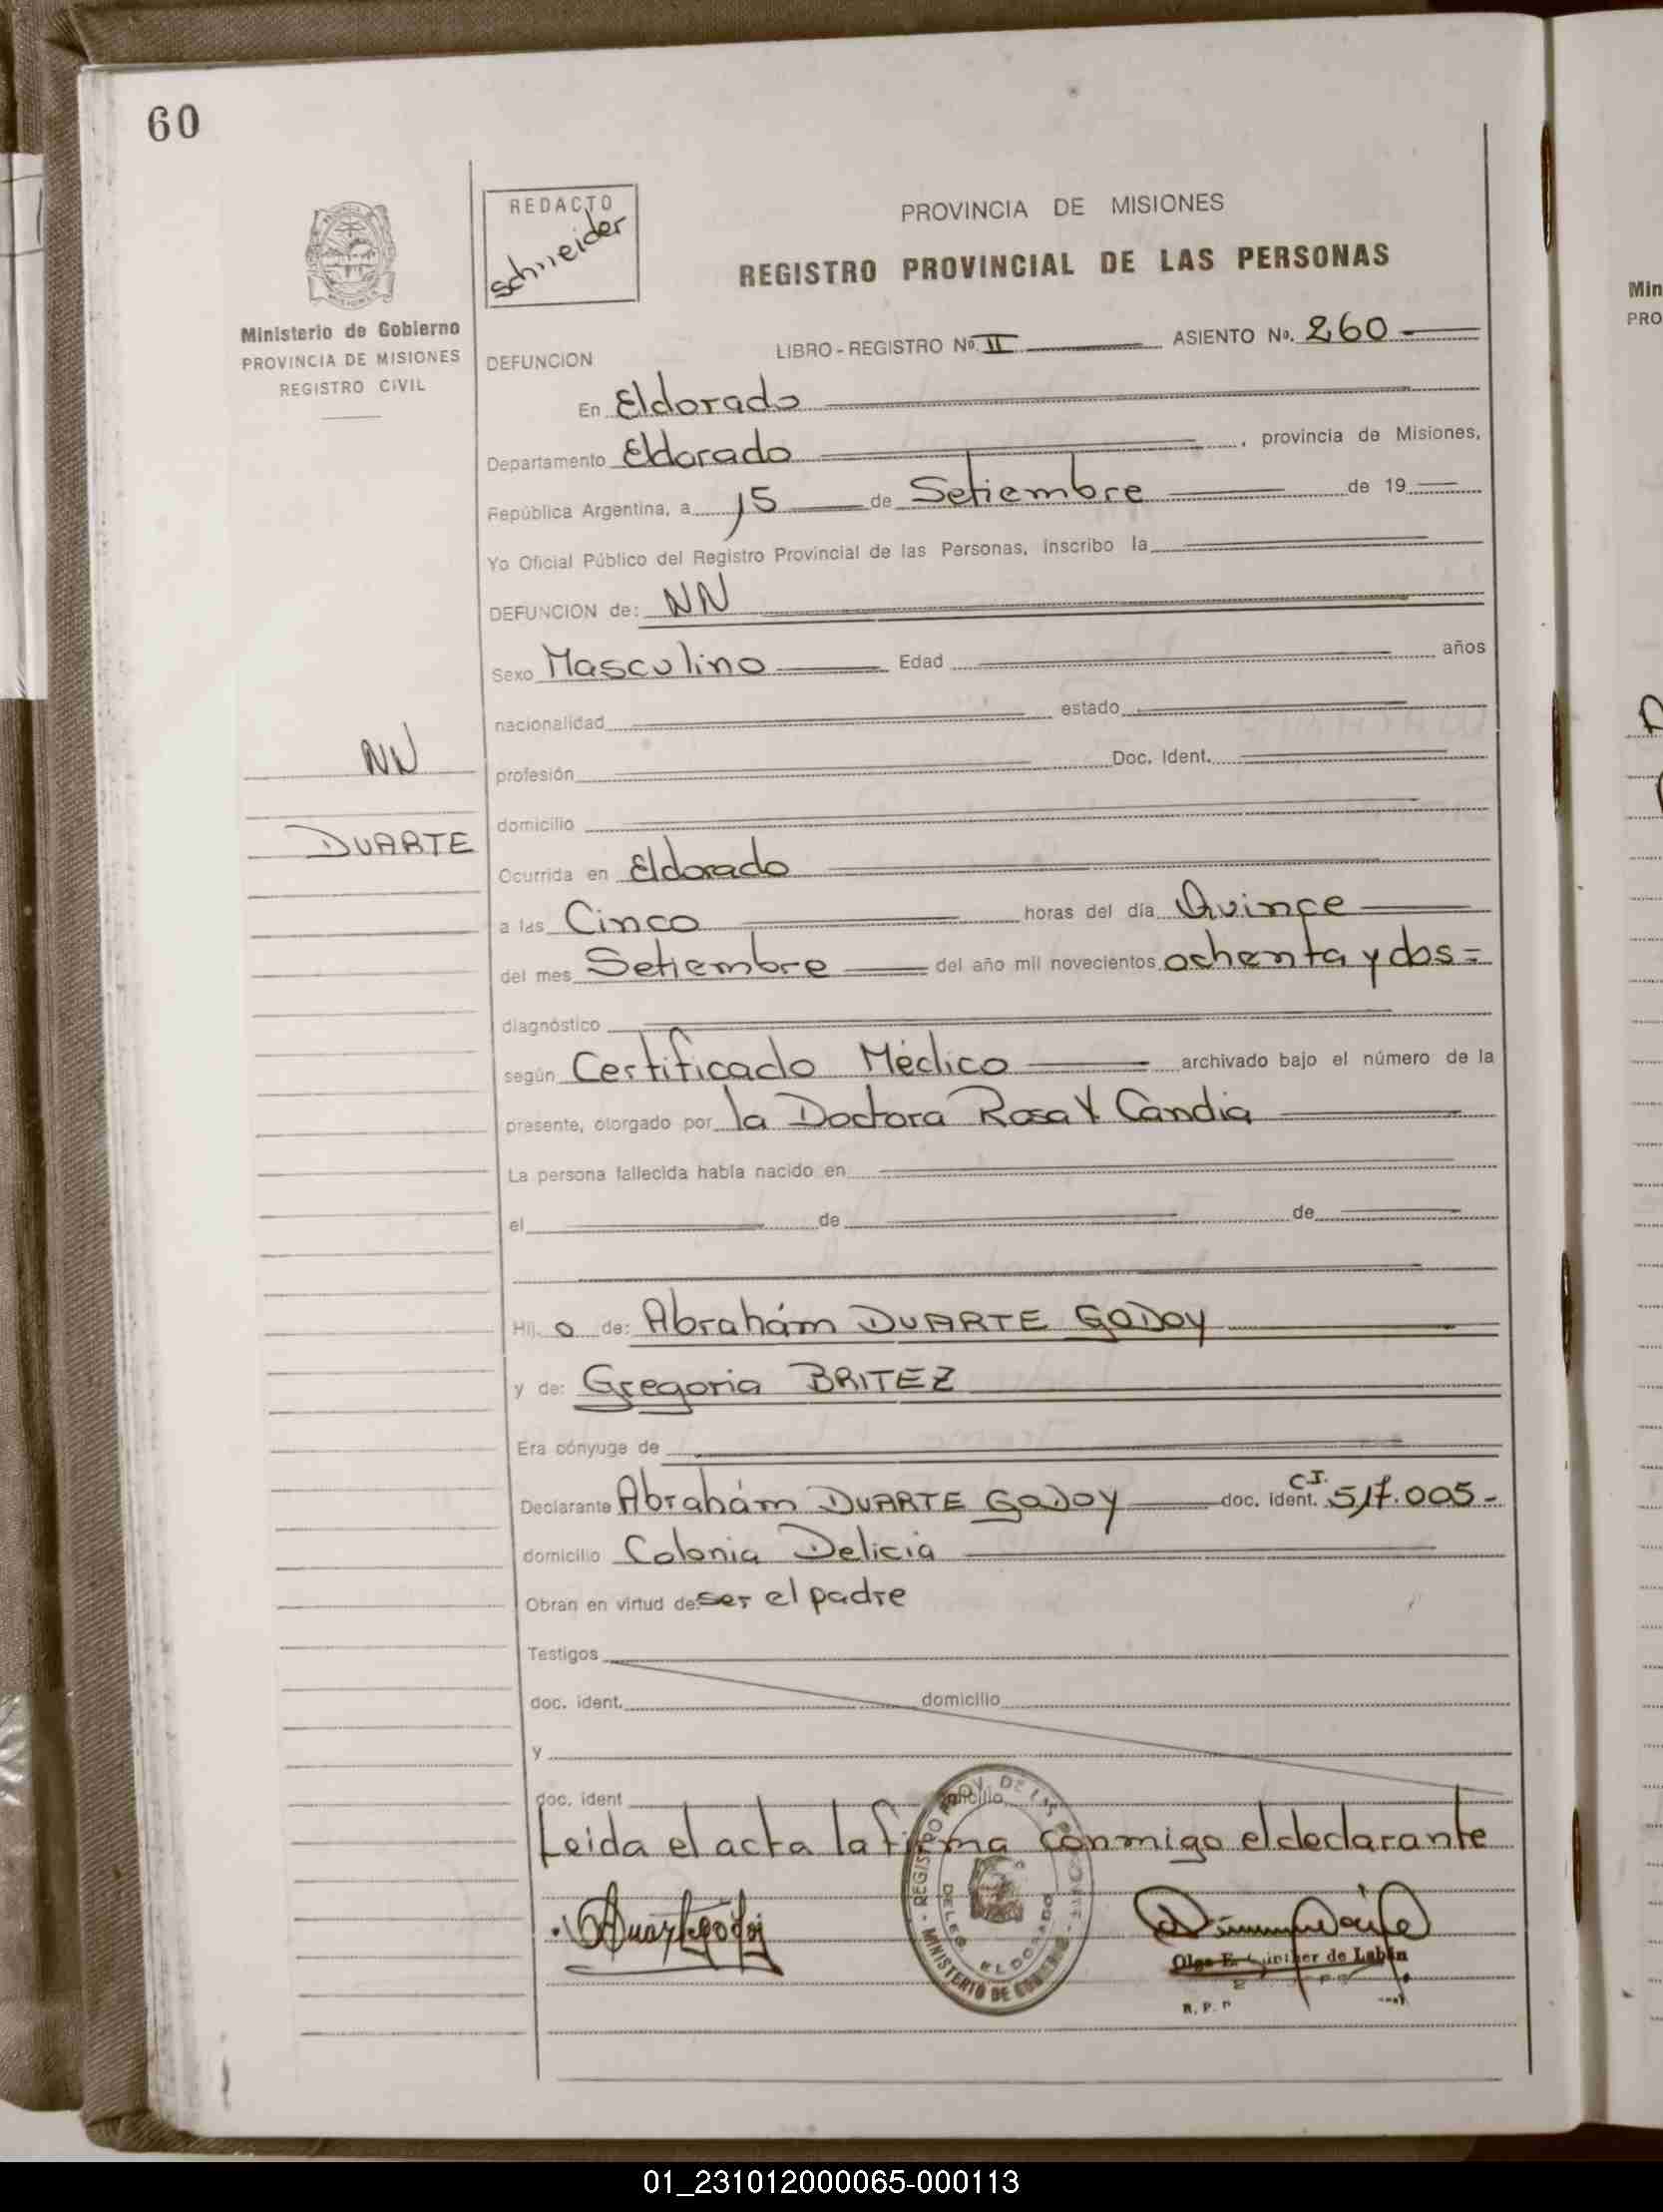 60
REDACTO
Schneider
PROVINCIA DE MISIONES
REGISTRO PROVINCIAL DE LAS PERSONAS
Ministerio de Gobierno
PROVINCIA DE MISIONES
REGISTRO CIVIL
DEFUNCION LIBRO-REGISTRO No. II ASIENTO No. 260
En Eldorado
Departamento Eldorado, provincia de Misiones,
República Argentina, a 15 de Setiembre de 19
Yo Oficial Público del Registro Provincial de las Personas, inscribo la
DEFUNCION de: NN
Sexo Masculino Edad años
nacionalidad estado
NN
profesión Doc. Ident.
domicilio
DUARTE
Ocurrida en Eldorado
a las Cinco horas del día Quince
del mes Setiembre del año mil novecientos ochenta y dos =
diagnóstico
según Certificado Médico archivado bajo el número de la
presente, otorgado por la Doctora Rosa Y Candia
La persona fallecida había nacido en
el de de
Hij o de: Abrahám DUARTE GODOY
y de: Gregoria BRITEZ
Era cónyuge de
Declarante Abrahám DUARTE GODOY doc. ident. C.I. 517.005-
domicilio Colonia Delicia
Obran en virtud de ser el padre
Testigos
doc. ident. domicilio
y
doc. ident
Leida el acta la firma conmigo el declarante
Duarte godoj
REGISTRO PROV. DE LAS
MINISTERIO DE GOBIERNO
ELDORADO
de Labin
R. P.
Min
PRO
01_231012000065-000113